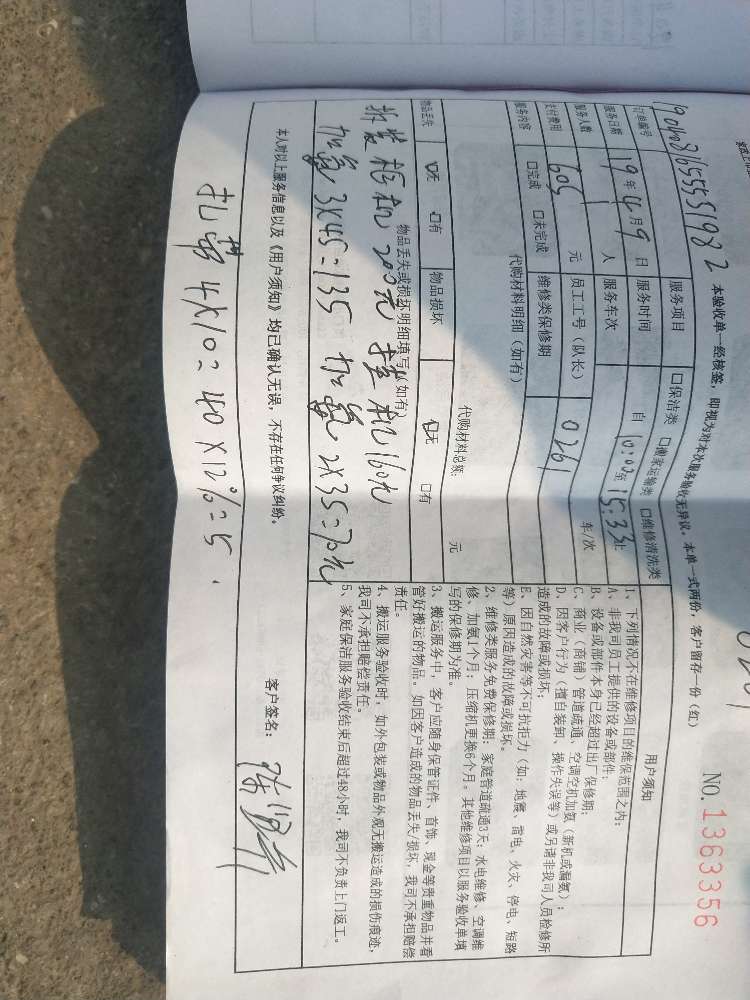 NO. 1363356
本验收单一经核签，即视为对本次服务验收无异议。本单一式两份，客户留存一份（红）
订单编号 服务项目 □保洁类 □搬家运输类 □维修清洗类
服务日期 19年4月9日 服务时间 自10:00至15:33止
服务人数 人 服务车次 车/次
支付费用 605 元 员工工号（队长） 0261
服务内容 □完成 □未完成 维修类保修期
代购材料明细（如有）
代购材料总额： 元
物品丢失 □无 □有 物品损坏 □无 □有
物品丢失或损坏明细填写（如有）
拆装柜机200元 挂机160元
加氟3X45=135 加氟2X35=70元
用户须知
1、下列情况不在维修项目的维保范围之内：
A、非我司员工提供的设备或部件；
B、设备或部件本身已经超过出厂保修期；
C、商业（商铺）管道疏通、空调空机加氨（新机或漏氨）；
D、因客户行为（擅自装卸、操作失误等）或另请非我司人员检修所
造成的故障或损坏；
E、因自然灾害等不可抗拒力（如：地震、雷电、火灾、停电、短路
等）原因造成的故障或损坏。
2、维修类服务免费保修期：家庭管道疏通3天；水电维修、空调维
修、加氨1个月；压缩机更换6个月。其他维修项目以服务验收单填
写的保修期为准。
3、搬运服务中，客户应随身保管证件、首饰、现金等贵重物品并看
管好搬运的物品。如因客户造成的物品丢失/损坏，我司不承担赔偿
责任。
4、搬运服务验收时，如外包装或物品外观无搬运造成的损伤痕迹，
我司不承担赔偿责任。
5、家庭保洁服务验收结束后超过48小时，我司不负责上门返工。
本人对以上服务信息以及《用户须知》均已确认无误，不存在任何争议纠纷。
客户签名：
4X10=40X12%=5